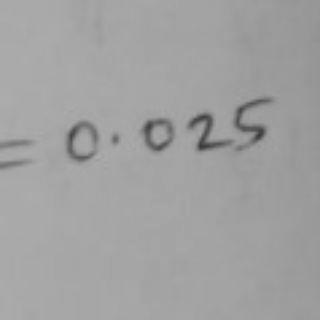 = 0.025